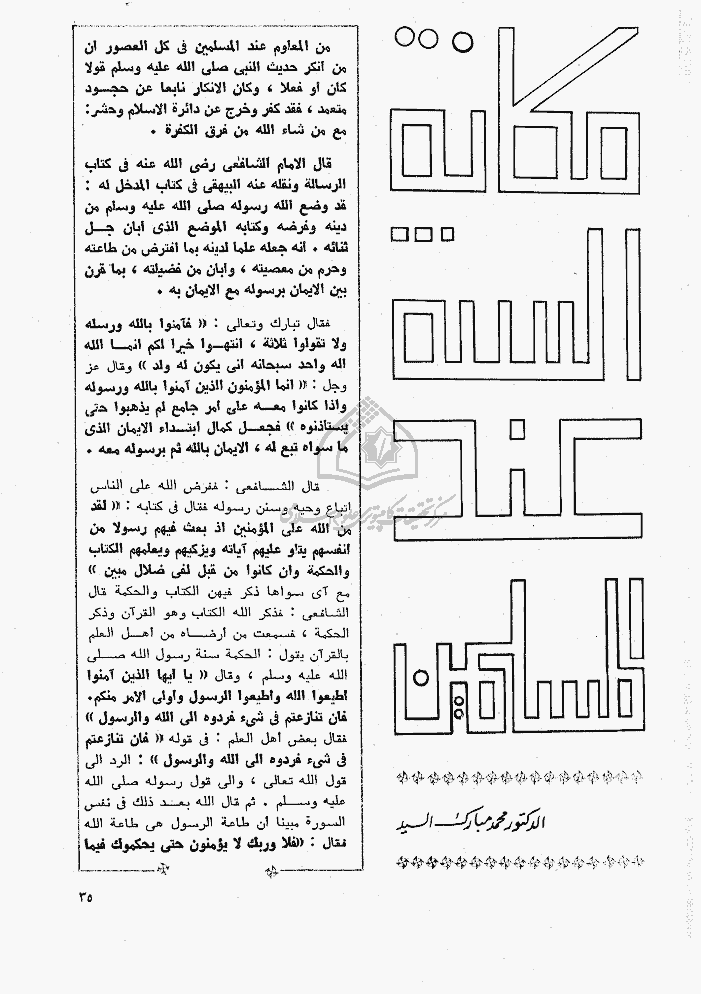 مكانة
السنة
عند
المسلمين
الدكتور محمد مبارك السيد
من المعلوم عند المسلمين فى كل العصور ان
من أنكر حديث النبى صلى الله عليه وسلم قولا
كان أو فعلا ، وكان الانكار نابعا عن جحسود
متعمد ، فقد كفر وخرج عن دائرة الاسلام وحشر:
مع من شاء الله من فرق الكفرة .
قال الامام الشافعى رضى الله عنه فى كتاب
الرسالة ونقله عنه البيهقى فى كتاب المدخل له :
قد وضع الله رسوله صلى الله عليه وسلم من
دينه وفرضه وكتابه الموضع الذى أبان جـــل
ثنائه . انه جعله علما لدينه بما افترض من طاعته
وحرم من معصيته ، وأبان من فضيلته ، بما قرن
بين الايمان برسوله مع الايمان به .
فقال تبارك وتعالى : (( فآمنوا بالله ورسله
ولا تقولوا ثلاثة ، انتهـوا خيرا لكم انمـا الله
اله واحد سبحانه انى يكون له ولد )) وقال عز
وجل : (( انما المؤمنون الذين آمنوا بالله ورسوله
واذا كانوا معـه على أمر جامع لم يذهبوا حتى
يستأذنوه )) فجعـل كمال ابتـداء الايمان الذى
ما سواه تبع له ، الايمان بالله ثم برسوله معه .
قال الشـافعى : ففرض الله على الناس
اتباع وحيه وسنن رسوله فقال فى كتابه : (( لقد
من الله على المؤمنين اذ بعث فيهم رسولا من
أنفسهم يتلو عليهم آياته ويزكيهم ويعلمهم الكتاب
والحكمة وان كانوا من قبل لفى ضلال مبين ))
مع آى سواها ذكر فيهن الكتاب والحكمة قال
الشافعى : فذكر الله الكتاب وهو القرآن وذكر
الحكمة ، فسمعت من أرضـاه من أهـل العلم
بالقرآن يقول : الحكمة سنة رسول الله صـلى
الله عليه وسلم ، وقال (( يا أيها الذين آمنوا
اطيعوا الله وأطيعوا الرسول وأولى الأمر منكم.
فان تنازعتم فى شىء فردوه الى الله والرسول ))
فقال بعض أهل العلم : فى قوله (( فان تنازعتم
فى شىء فردوه الى الله والرسول )) : الرد الى
قول الله تعالى ، والى قول رسوله صلى الله
عليه وسـلم . ثم قال الله بعـد ذلك فى نفس
السورة مبينا أن طاعة الرسول هى طاعة الله
فقال : ((فلا وربك لا يؤمنون حتى يحكموك فيما
٣٥